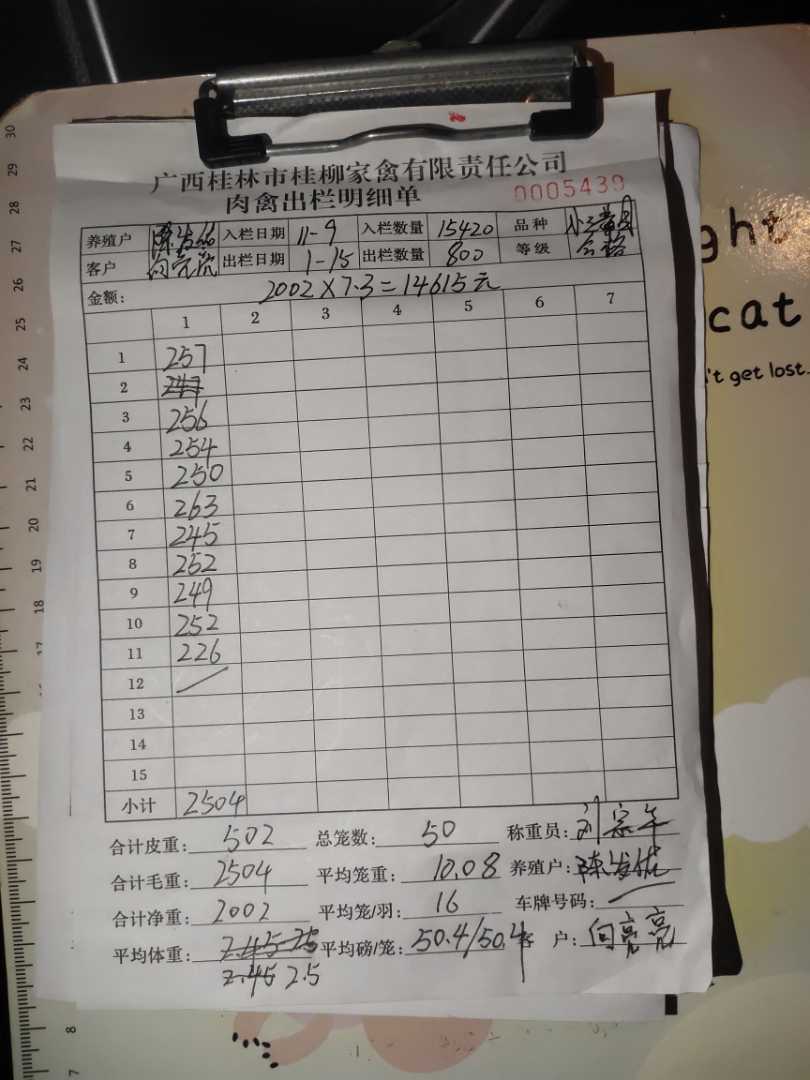 广西桂林市桂柳家禽有限责任公司
肉禽出栏明细单 0005439
养殖户 入栏日期 11-9 入栏数量 15420 品种
客户 出栏日期 1-15 出栏数量 800 等级 合格
金额: 2002×7.3=14615元
1 2 3 4 5 6 7
1 257
2 247
3 256
4 254
5 250
6 263
7 245
8 252
9 249
10 252
11 226
12
13
14
15
小计 2504
合计皮重: 502 总笼数: 50 称重员:
合计毛重: 2504 平均笼重: 10.08 养殖户: 陈发优
合计净重: 2002 平均笼/羽: 16 车牌号码:
平均体重: 平均磅/笼: 50.4/50.4 客 户: 向亮亮
2.45 2.5
ght
cat
't get lost.
30
29
28
27
26
25
24
23
22
21
20
19
18
17
8
7